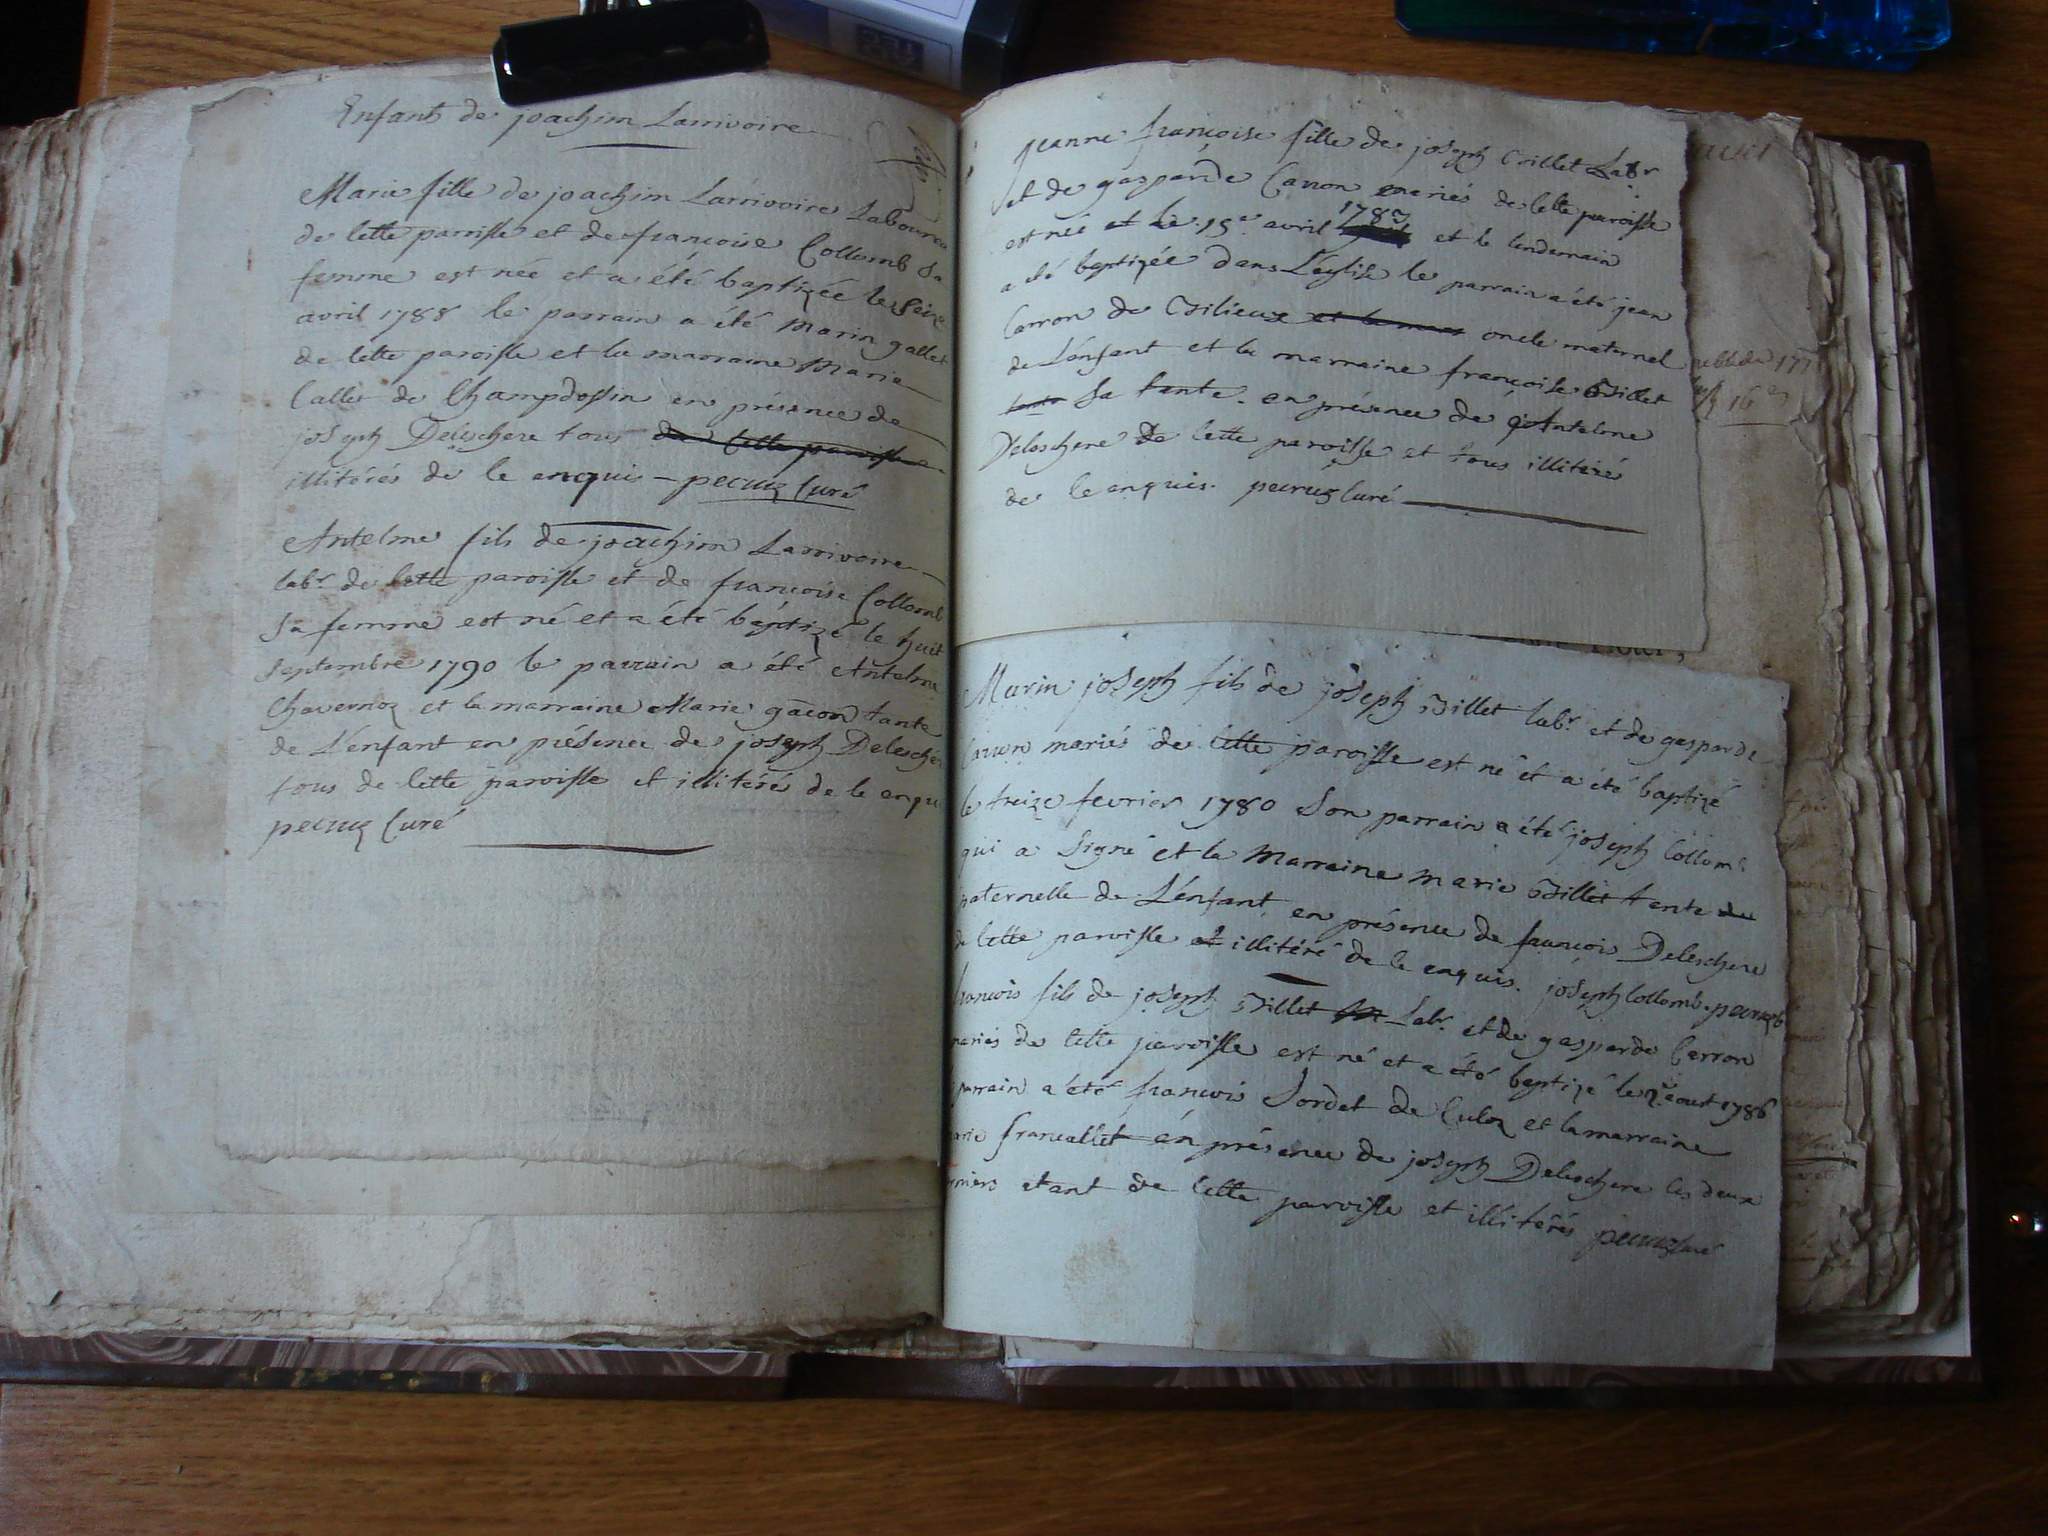 Enfants de joachim Larrivoire
Marie fille de joachim Larrivoire Laboureu
de cette paroisse et de françoise Collomb sa
femme est née et a été baptizée le seize
avril 1788 le parrain a été Marin gallet
de cette paroisse et la marraine Marie
Callet de Champdossin en présence de
joseph Deleschere tous de cette paroisse
illitérés de ce enquis - pecruz Curé
Antelme fils de joachim Larrivoire
labr. de cette paroisse et de françoise Collomb
sa femme est né et a été baptizé le huit
septembre 1790 le parrain a été Antelme
Chavernoz et la marraine Marie gâcon tante
de L'enfant en présence de joseph Delesché
tous de cette paroisse et illitérés de ce enqu
pecruz Curé
jeanne françoise fille de joseph Billet Labr
et de gasparde Carron mariés de cette paroisse
est née et Le 15e avril 1783 et le lendemain
a été baptizée dans L'église le parrain a été jean
Carron de oncle maternel
de L'enfant et la marraine françoise Billet
tante sa tante. en présence de Antelme
Deleschere de cette paroisse et tous illitérés
de ce enquis. pecruz Curé
Marin joseph fils de joseph Billet labr. et de gasparde
Carron mariés de cette paroisse est né et a été baptizé
le treize fevrier 1780 son parrain a été joseph Collomb
qui a signé et la Marraine marie Billet tente de
paternelle de L'enfant en présence de françois Deleschere
de cette paroisse et illitéré de ce enquis. joseph Collomb. pecruz
françois fils de joseph Billet Labr. et de gasparde Carron
mariés de cette paroisse est né et a été baptizé le 2e aoust 1786
parrain a été françois Sordet de Culoz et la marraine
arie francallet en présence de joseph Deleschere les deux
rniers etant de cette paroisse et illitérés pecruz Curé